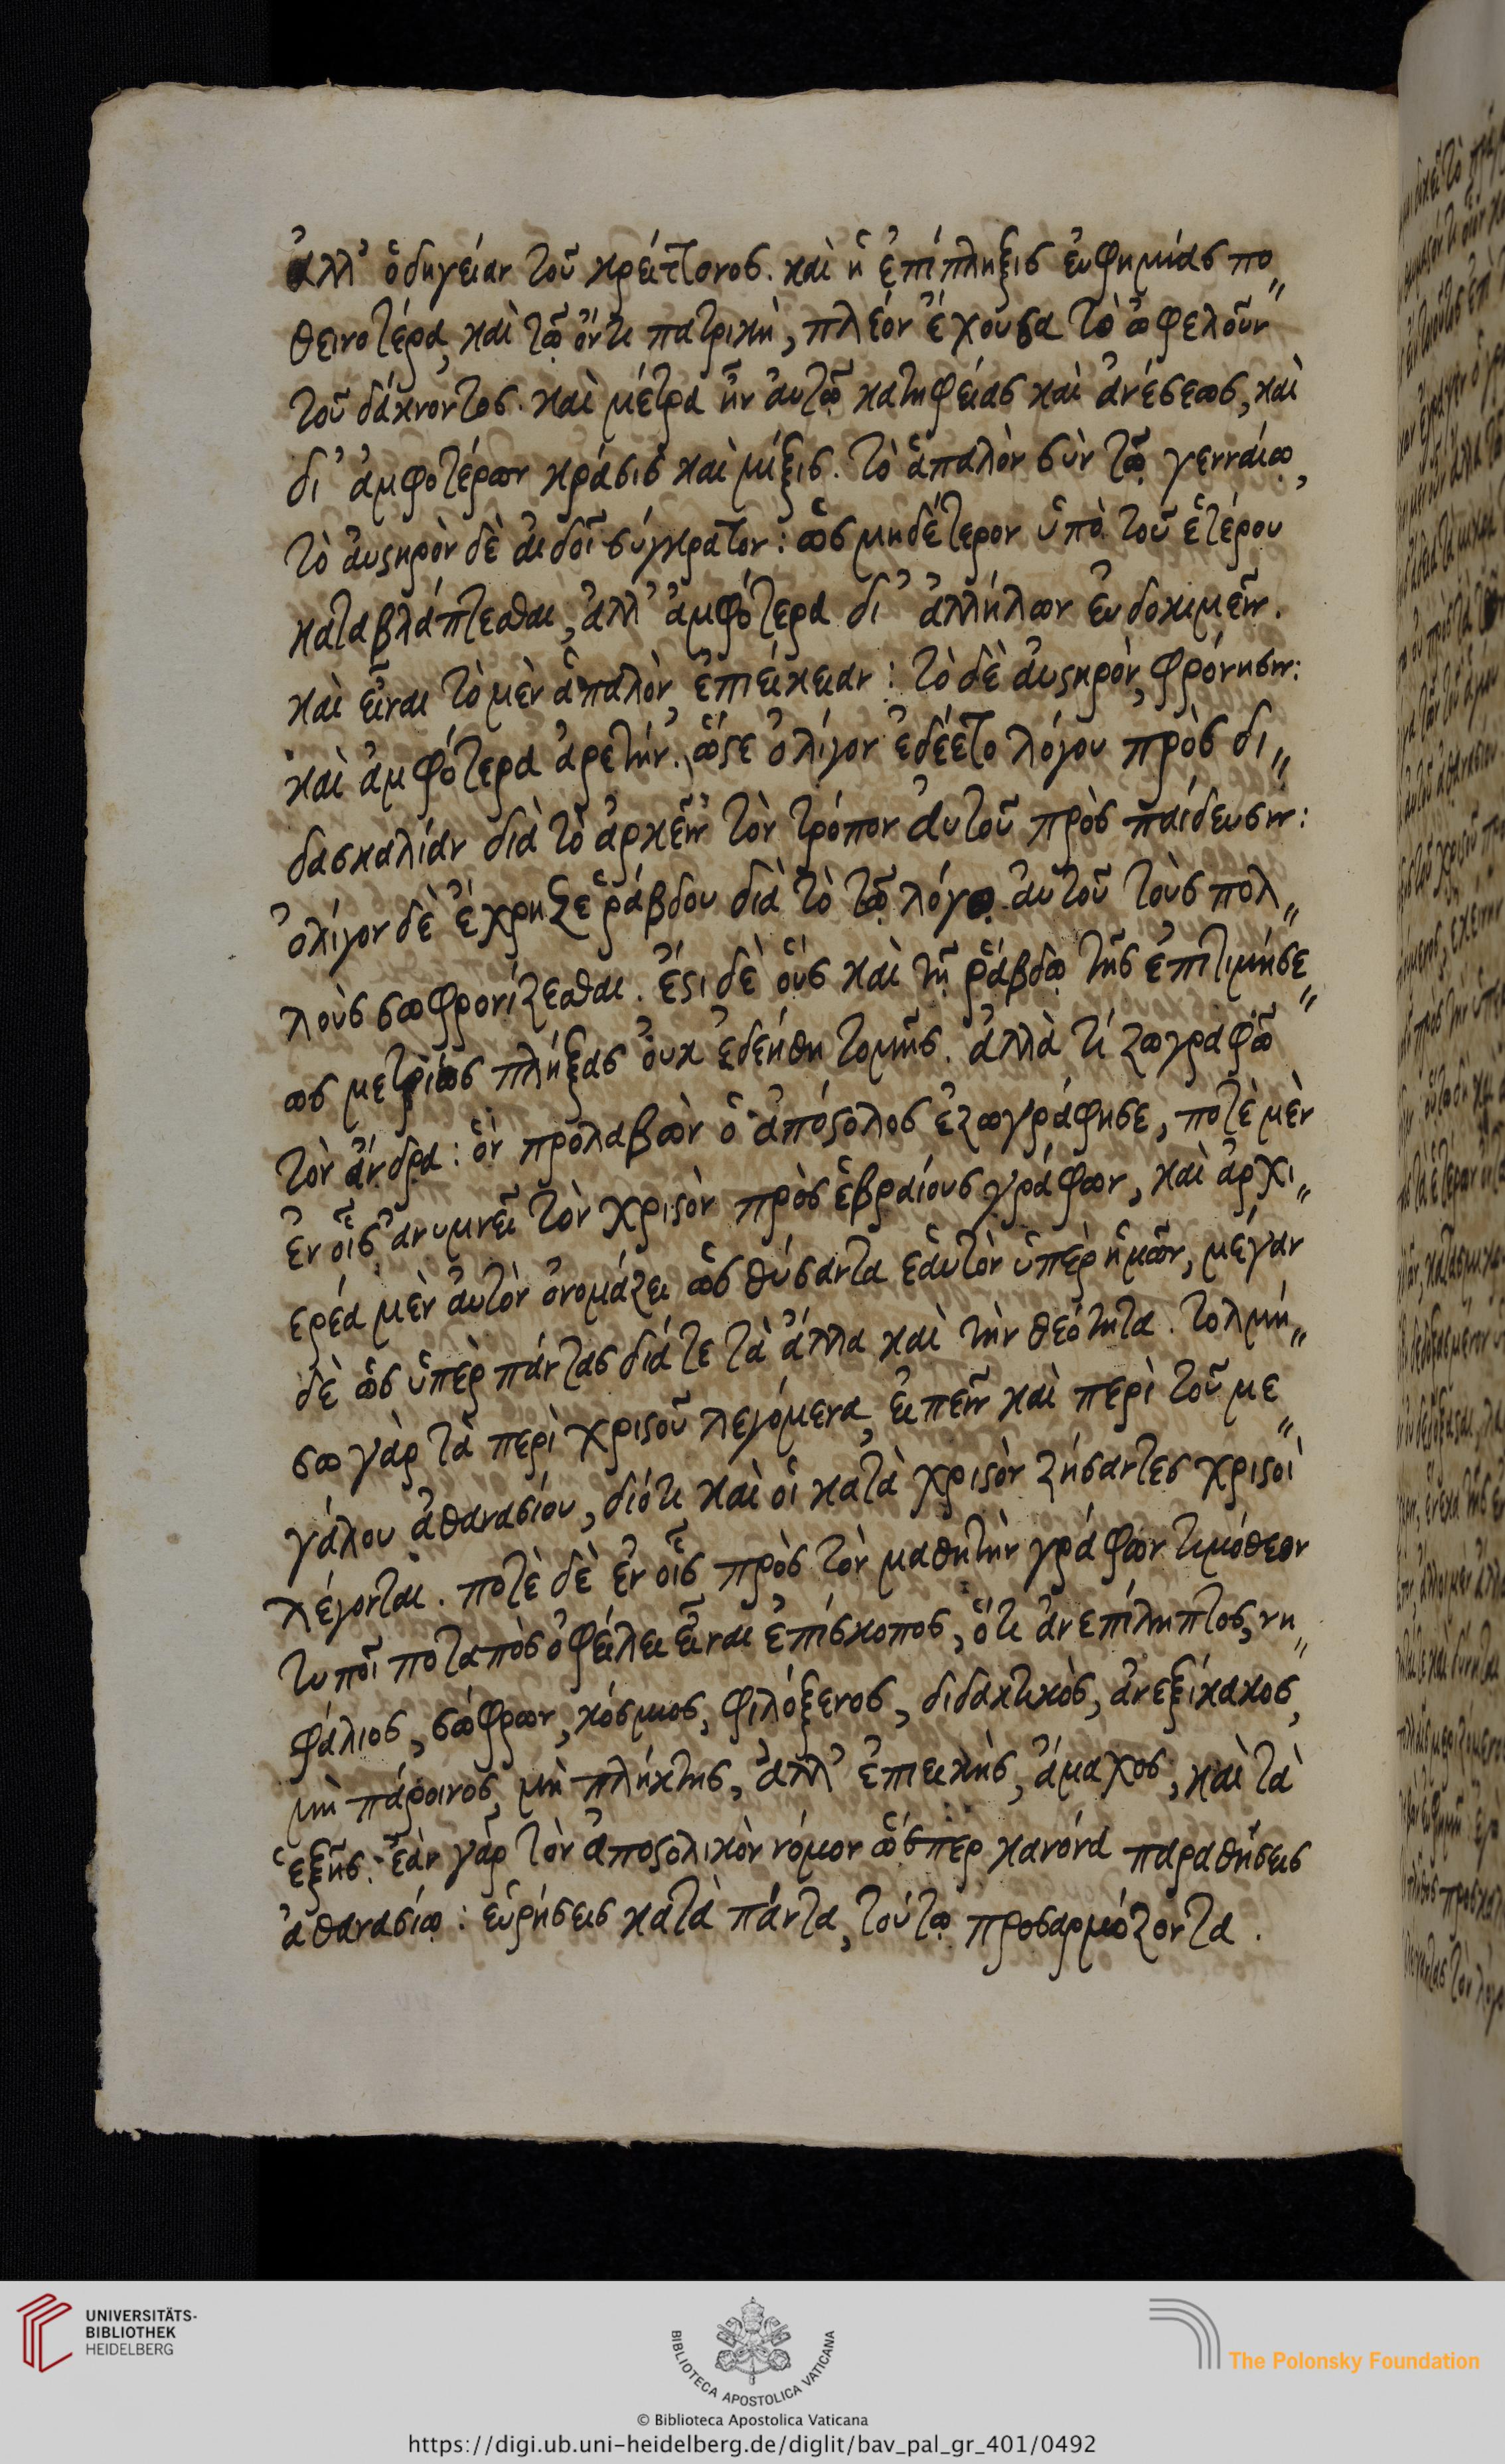 ἀλλ' ὁδηγεῖαν τοῦ κρείττονος. καὶ ἡ ἐπίπληξις ἐυφημίας πο„
θεινοτέρα, καὶ τῶ ὄντι πατρικὴ, πλέον ἔχουσα τὸ ὠφελοῦν
τοῦ δάκνοντος. καὶ μέτρα ἦν ἀυτῶ κατηφείας καὶ ἀνέσεως, καὶ
δι' ἀμφοτέρων κράσις καὶ μίξις. τὸ ἁπαλὸν σὺν τῶ γενναίω,
τὸ ἀυστηρὸν δὲ ἀιδοῖ σύγκρατον: ὡς μηδέτερον ὑπὸ τοῦ ἑτέρου
καταβλάπτεσθαι, ἀλλ' ἀμφότερα δι' ἀλλήλων ἐυδοκιμεῖν.
καὶ εἶναι τὸ μὲν ἁπαλὸν, ἐπιείκειαν: τὸ δὲ ἀυστηρὸν, φρόνησιν:
καὶ ἀμφότερα ἀρετήν. ὥστε ὀλίγον ἐδέετο λόγου πρὸς δι„
δασκαλίαν διὰ τὸ ἀρκεῖν τὸν τρόπον ἀυτοῦ πρὸς παίδευσιν:
ὀλίγον δὲ ἔχρηζε ῥάβδου διὰ τὸ τῶ λόγω ἀυτοῦ τοὺς πολ„
λοὺς σωφρονίζεσθαι. ἔστι δὲ οὓς καὶ τῇ ῥάβδω τῆς ἐπιτιμήσε„
ως μετρίως πλήξας ὀυκ ἐδεήθη τομῆς. ἀλλὰ τί ζωγραφῶ
τὸν ἄνδρα: ὃν προλαβὼν ὁ ἀπόστολος ἐζωγράφησε, ποτὲ μὲν
ἐν οἷς ἀνυμνεῖ τὸν χριστὸν πρὸς ἑβραίους γράφων, καὶ ἀρχι„
ερέα μὲν ἀυτὸν ὀνομάζει ὡς θύσαντα ἑαυτὸν ὑπὲρ ἡμῶν, μέγαν
δὲ ὡς ὑπὲρ πάντας διά τε τὰ ἄλλα καὶ τὴν θεότητα. τολμή„
σω γὰρ τὰ περὶ χριστοῦ λεγόμενα, ἐιπεῖν καὶ περὶ τοῦ με„
γάλου ἀθανασίου, διότι καὶ οἱ κατὰ χριστὸν ζήσαντες χριστοὶ
λέγονται. ποτὲ δὲ ἐν οἷς πρὸς τὸν μαθητὴν γράφων τιμόθεον
τυποῖ ποταπὸς ὀφείλει εἶναι ἐπίσκοπος, ὅτι ἀνεπίληπτος, νη„
φάλιος, σώφρων, κόσμιος, φιλόξενος, διδακτικὸς, ἀνεξίκακος,
μὴ πάροινος, μὴ πλήκτης, ἀλλ' ἐπιεικὴς, ἄμαχος, καὶ τὰ
ἑξῆς. ἐὰν γὰρ τὸν ἀποστολικὸν νόμον ὥσπερ κανόνα παραθήσεις
ἀθανασίω: εὑρήσεις κατὰ πάντα, τούτω προσαρμόζοντα.
UNIVERSITÄTS-
BIBLIOTHEK
HEIDELBERG
BIBLIOTECA APOSTOLICA VATICANA
The Polonsky Foundation
© Biblioteca Apostolica Vaticana
https://digi.ub.uni-heidelberg.de/diglit/bav_pal_gr_401/0492